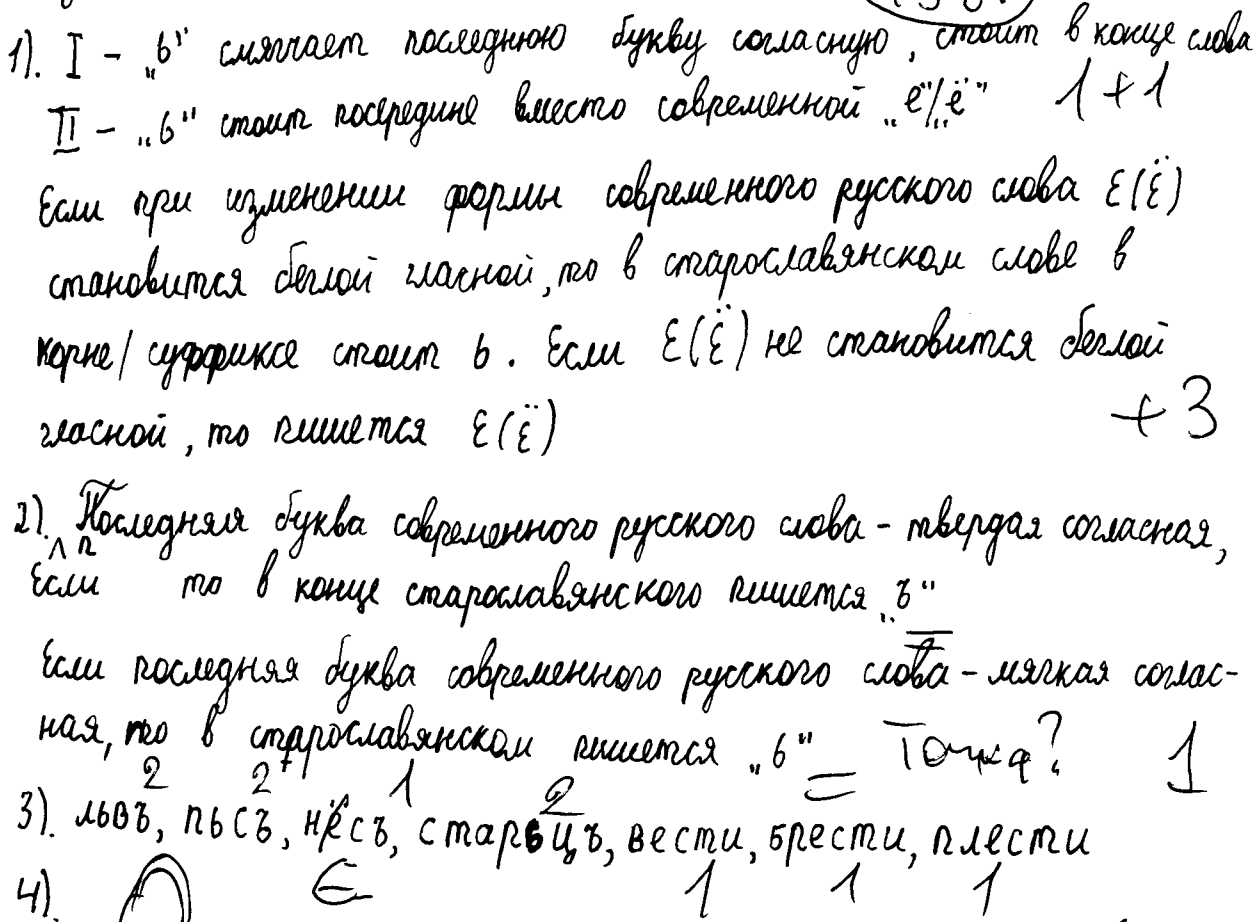 1). I – „ь" смягчает последнюю букву согласную, стоит в конце слова
II – „ь" стоит посередине вместо современной „е"/„ё" 1+1
Если при изменении формы современного русского слова Е(Ё)
становится беглой гласной, то в старославянском слове в
корне/суффиксе стоит ь. Если Е(Ё) не становится беглой
гласной, то пишется Е(Ё) +3
2). Последняя буква современного русского слова – твердая согласная,
Если п то в конце старославянского пишется „ъ"
Если последняя буква современного русского слова – мягкая соглас-
ная, то в старославянском пишется „ь" Точка? 1
2 2 1 2
3). львъ, пьсъ, нёсъ, старьцъ, вести, брести, плести
4). Е 1 1 1